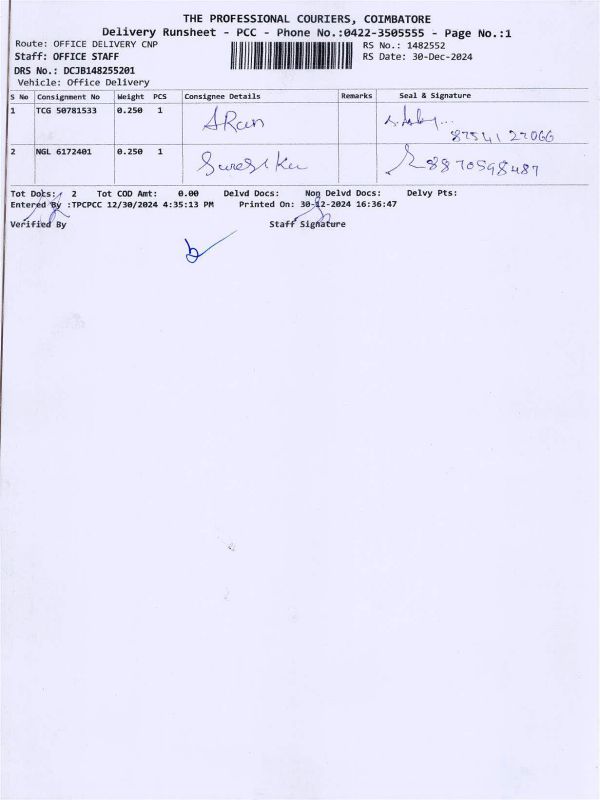 THE PROFESSIONAL COURIERS, COIMBATORE
Delivery Runsheet - PCC - Phone No.:0422-3505555 - Page No.:1
Route: OFFICE DELIVERY CNP RS No.: 1482552
Staff: OFFICE STAFF RS Date: 30-Dec-2024
DRS No.: DCJB148255201
Vehicle: Office Delivery
S No Consignment No Weight PCS Consignee Details Remarks Seal & Signature
1 TCG 50781533 0.250 1 ARan
87541 27066
2 NGL 6172401 0.250 1 Suresh Ku 8870598487
Tot Doks: 2 Tot COD Amt: 0.00 Delvd Docs: Non Delvd Docs: Delvy Pts:
Entered By :TPCPCC 12/30/2024 4:35:13 PM Printed On: 30-12-2024 16:36:47
Verified By Staff Signature